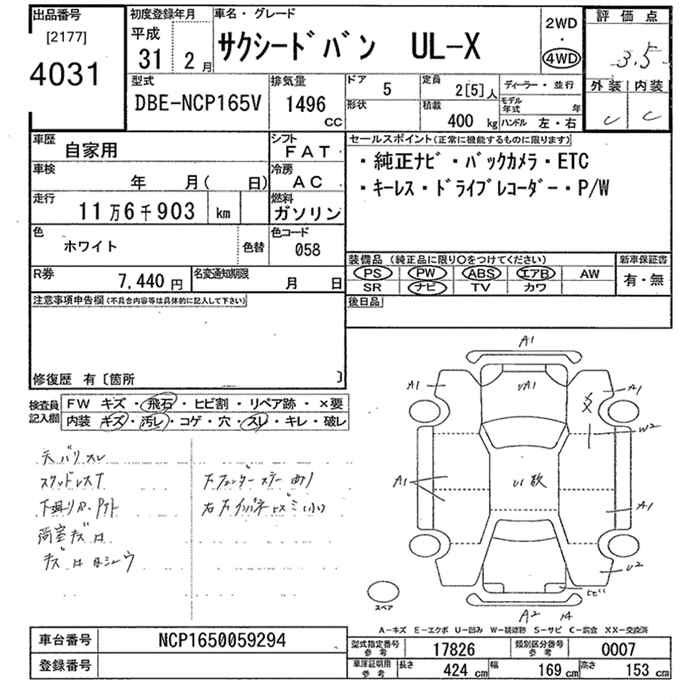 出品番号
[2177]
4031
初度登録年月
平成
31年 2月
車名・グレード
サクシードバン UL-X
2WD
・
4WD
評価点
3.5
外装 内装
C C
型式
DBE-NCP165V
排気量
1496 CC
ドア
5
定員
2[5]人
形状
積載
400 kg
ディーラー・並行
モデル年式 年
ハンドル 左・右
車歴
自家用
シフト
FAT
車検
年 月( 日)
冷房
AC
走行
11万6千903 km
燃料
ガソリン
色
ホワイト
色替
色コード
058
R券
7,440円
名変通知期限
月 日
セールスポイント(正常に機能するものに限ります)
・純正ナビ・バックカメラ・ETC
・キーレス・ドライブレコーダー・P/W
装備品 (純正品に限り○をつけてください)
PS PW ABS エアB AW
SR ナビ TV カワ
新車保証書
有・無
後日品
注意事項申告欄(不具合内容等は具体的に記入して下さい)
修復歴 有〔箇所 〕
検査員記入欄
FW キズ・飛石・ヒビ割・リペア跡・×要
内装 キズ・汚レ・コゲ・穴・スレ・キレ・破レ
スタッドレスT
荷室キズ
A1
A1
UA1
A1
W2
A1
A1
U2
A2
スペア
A-キズ E-エクボ U-凹み W-補修跡 S-サビ C-腐食 XX-交換済
車台番号
NCP1650059294
登録番号
型式指定番号 参考
17826
類別区分番号 参考
0007
車庫証明用 参考
長さ 424 cm 幅 169 cm 高さ 153 cm